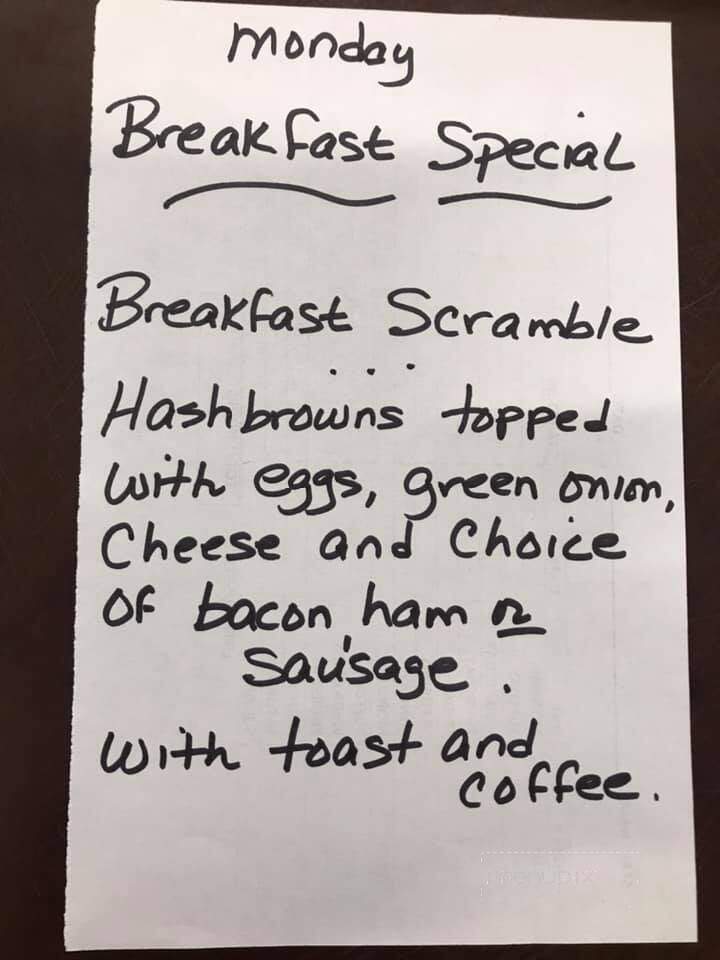 monday
Breakfast Special
Breakfast Scramble
...
Hashbrowns topped
with eggs, green onion,
Cheese and Choice
of bacon, ham or
sausage.
with toast and
coffee.